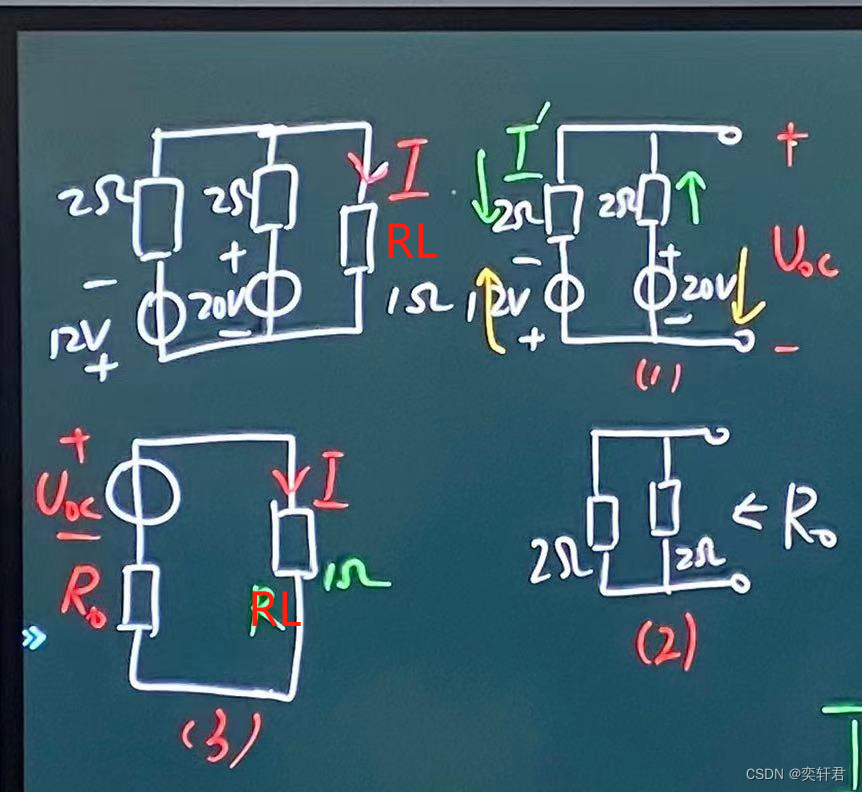 2Ω 2Ω I RL 1Ω
- + 12V + 20V -
I′ 2Ω 2Ω + Uoc -
- 12V + + 20V -
(1)
+ Uoc - R0 I 1Ω RL
(3)
2Ω 2Ω ← R0
(2)
»
CSDN @奕轩君